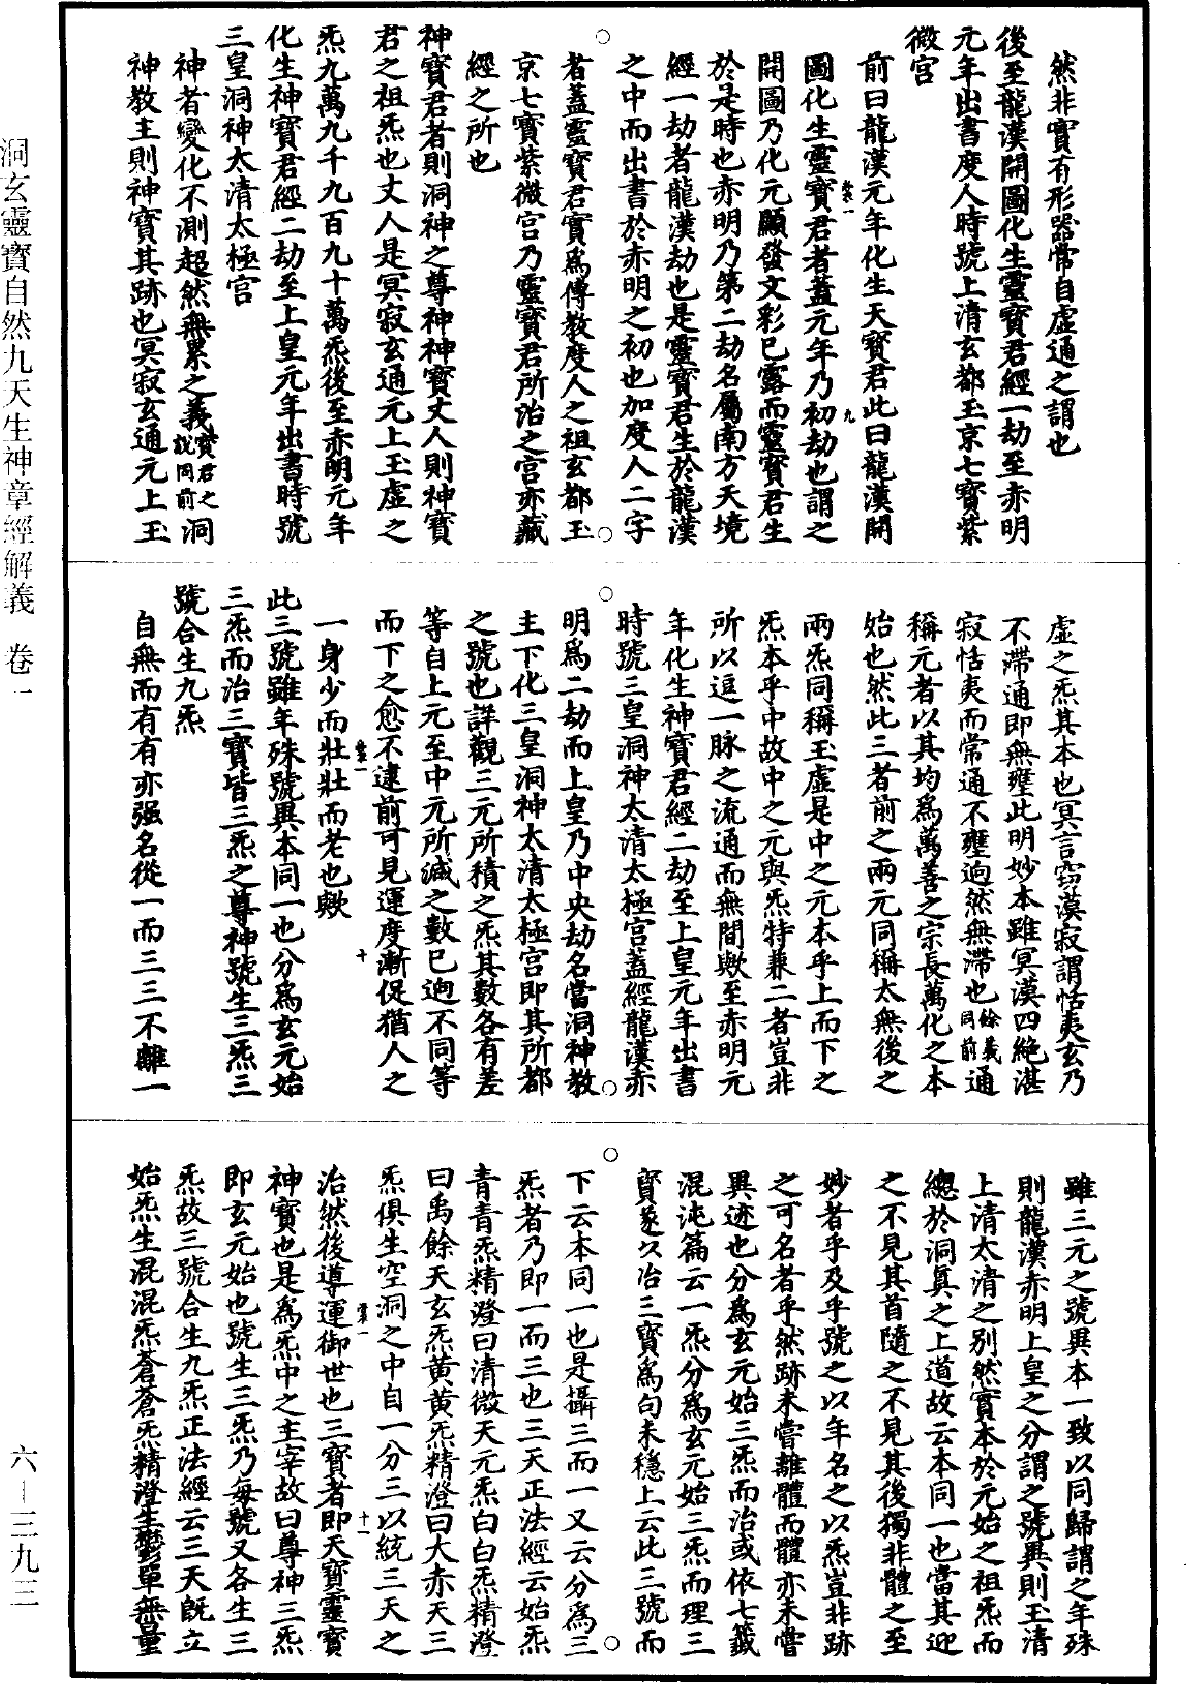 然非實有形器常自虛通之謂也
後至龍漢開圖化生靈寶君經一劫至赤明
元年出書度人時號上清玄都玉京七寶紫
微宫
前曰龍漢元年化生天寶君此曰龍漢開
圖化生靈寶君者蓋元年乃初劫也謂之
開圖乃化元顯發文彩已露而靈寶君生
於是時也赤明乃第二劫名屬南方天境
經一劫者龍漢劫也是靈寶君生於龍漢
之中而出書於赤明之初也加度人二字
者蓋靈寶君實爲傳教度人之祖玄都玉
京七寶紫微宫乃靈寶君所治之宫亦藏
經之所也
神寶君者則洞神之尊神神寶丈人則神寶
君之祖炁也丈人是冥寂玄通元上玉虛之
炁九萬九千九百九十萬炁後至赤明元年
化生神寶君經二劫至上皇元年出書時號
三皇洞神太清太極宫
神者變化不測超然無累之義寶君之說同前洞
神教主則神寶其跡也冥寂玄通元上玉
虛之炁其本也冥言窈漠寂謂恬夷玄乃
不滯通即無壅此明妙本雖冥漠四絶湛
寂恬夷而常通不壅逈然無滯也餘義同前通
稱元者以其均爲萬善之宗長萬化之本
始也然此三者前之兩元同稱太無後之
兩炁同稱玉虛是中之元本乎上而下之
炁本乎中故中之元與炁特兼二者豈非
所以這一脉之流通而無間歟至赤明元
年化生神寶君經二劫至上皇元年出書
時號三皇洞神太清太極宫蓋經龍漢赤
明爲二劫而上皇乃中央劫名當洞神教
主下化三皇洞神太清太極宫即其所都
之號也詳觀三元所積之炁其數各有差
等自上元至中元所減之數已逈不同等
而下之愈不逮前可見運度漸促猶人之
一身少而壯壯而老也歟
此三號雖年殊號異本同一也分爲玄元始
三炁而治三寶皆三炁之尊神號生三炁三
號合生九炁
自無而有有亦强名從一而三三不離一
雖三元之號異本一致以同歸謂之年殊
則龍漢赤明上皇之分謂之號異則玉清
上清太清之別然實本於元始之祖炁而
總於洞真之上道故云本同一也當其迎
之不見其首隨之不見其後獨非體之至
妙者乎及乎號之以年名之以炁豈非跡
之可名者乎然跡未嘗離體而體亦未嘗
異迹也分爲玄元始三炁而治或依七籤
混沌篇云一炁分爲玄元始三炁而理三
寶遂以治三寶爲句未穩上云此三號而
下云本同一也是攝三而一又云分爲三
炁者乃即一而三也三天正法經云始炁
青青炁精澄曰清微天元炁白白炁精澄
曰禹餘天玄炁黄黄炁精澄曰大赤天三
炁俱生空洞之中自一分三以統三天之
治然後導運御世也三寶者即天寶靈寶
神寶也是爲炁中之主宰故曰尊神三炁
即玄元始也號生三炁乃每號又各生三
炁故三號合生九炁正法經云三天旣立
始炁生混混炁蒼蒼炁精澄生鬱單無量
洞玄靈寶自然九天生神章經解義　卷一
六－三九三